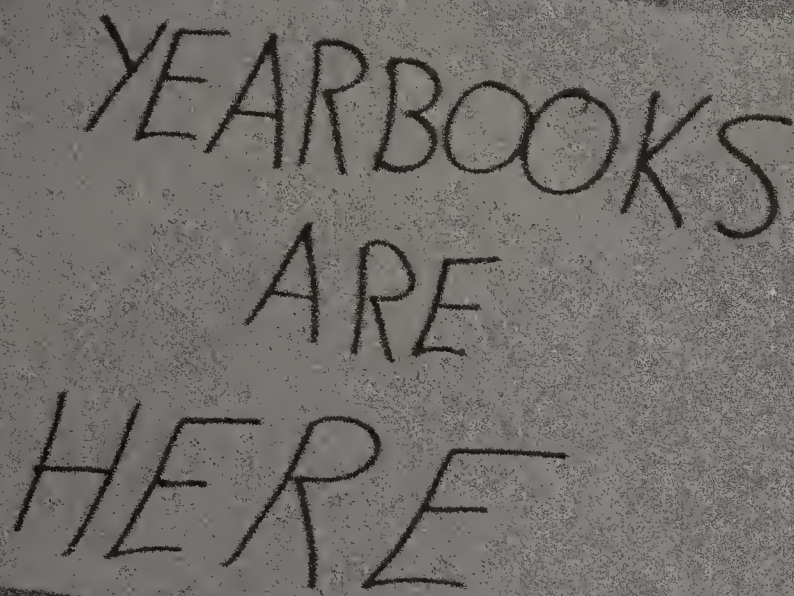 YEARBOOKS
ARE
HERE